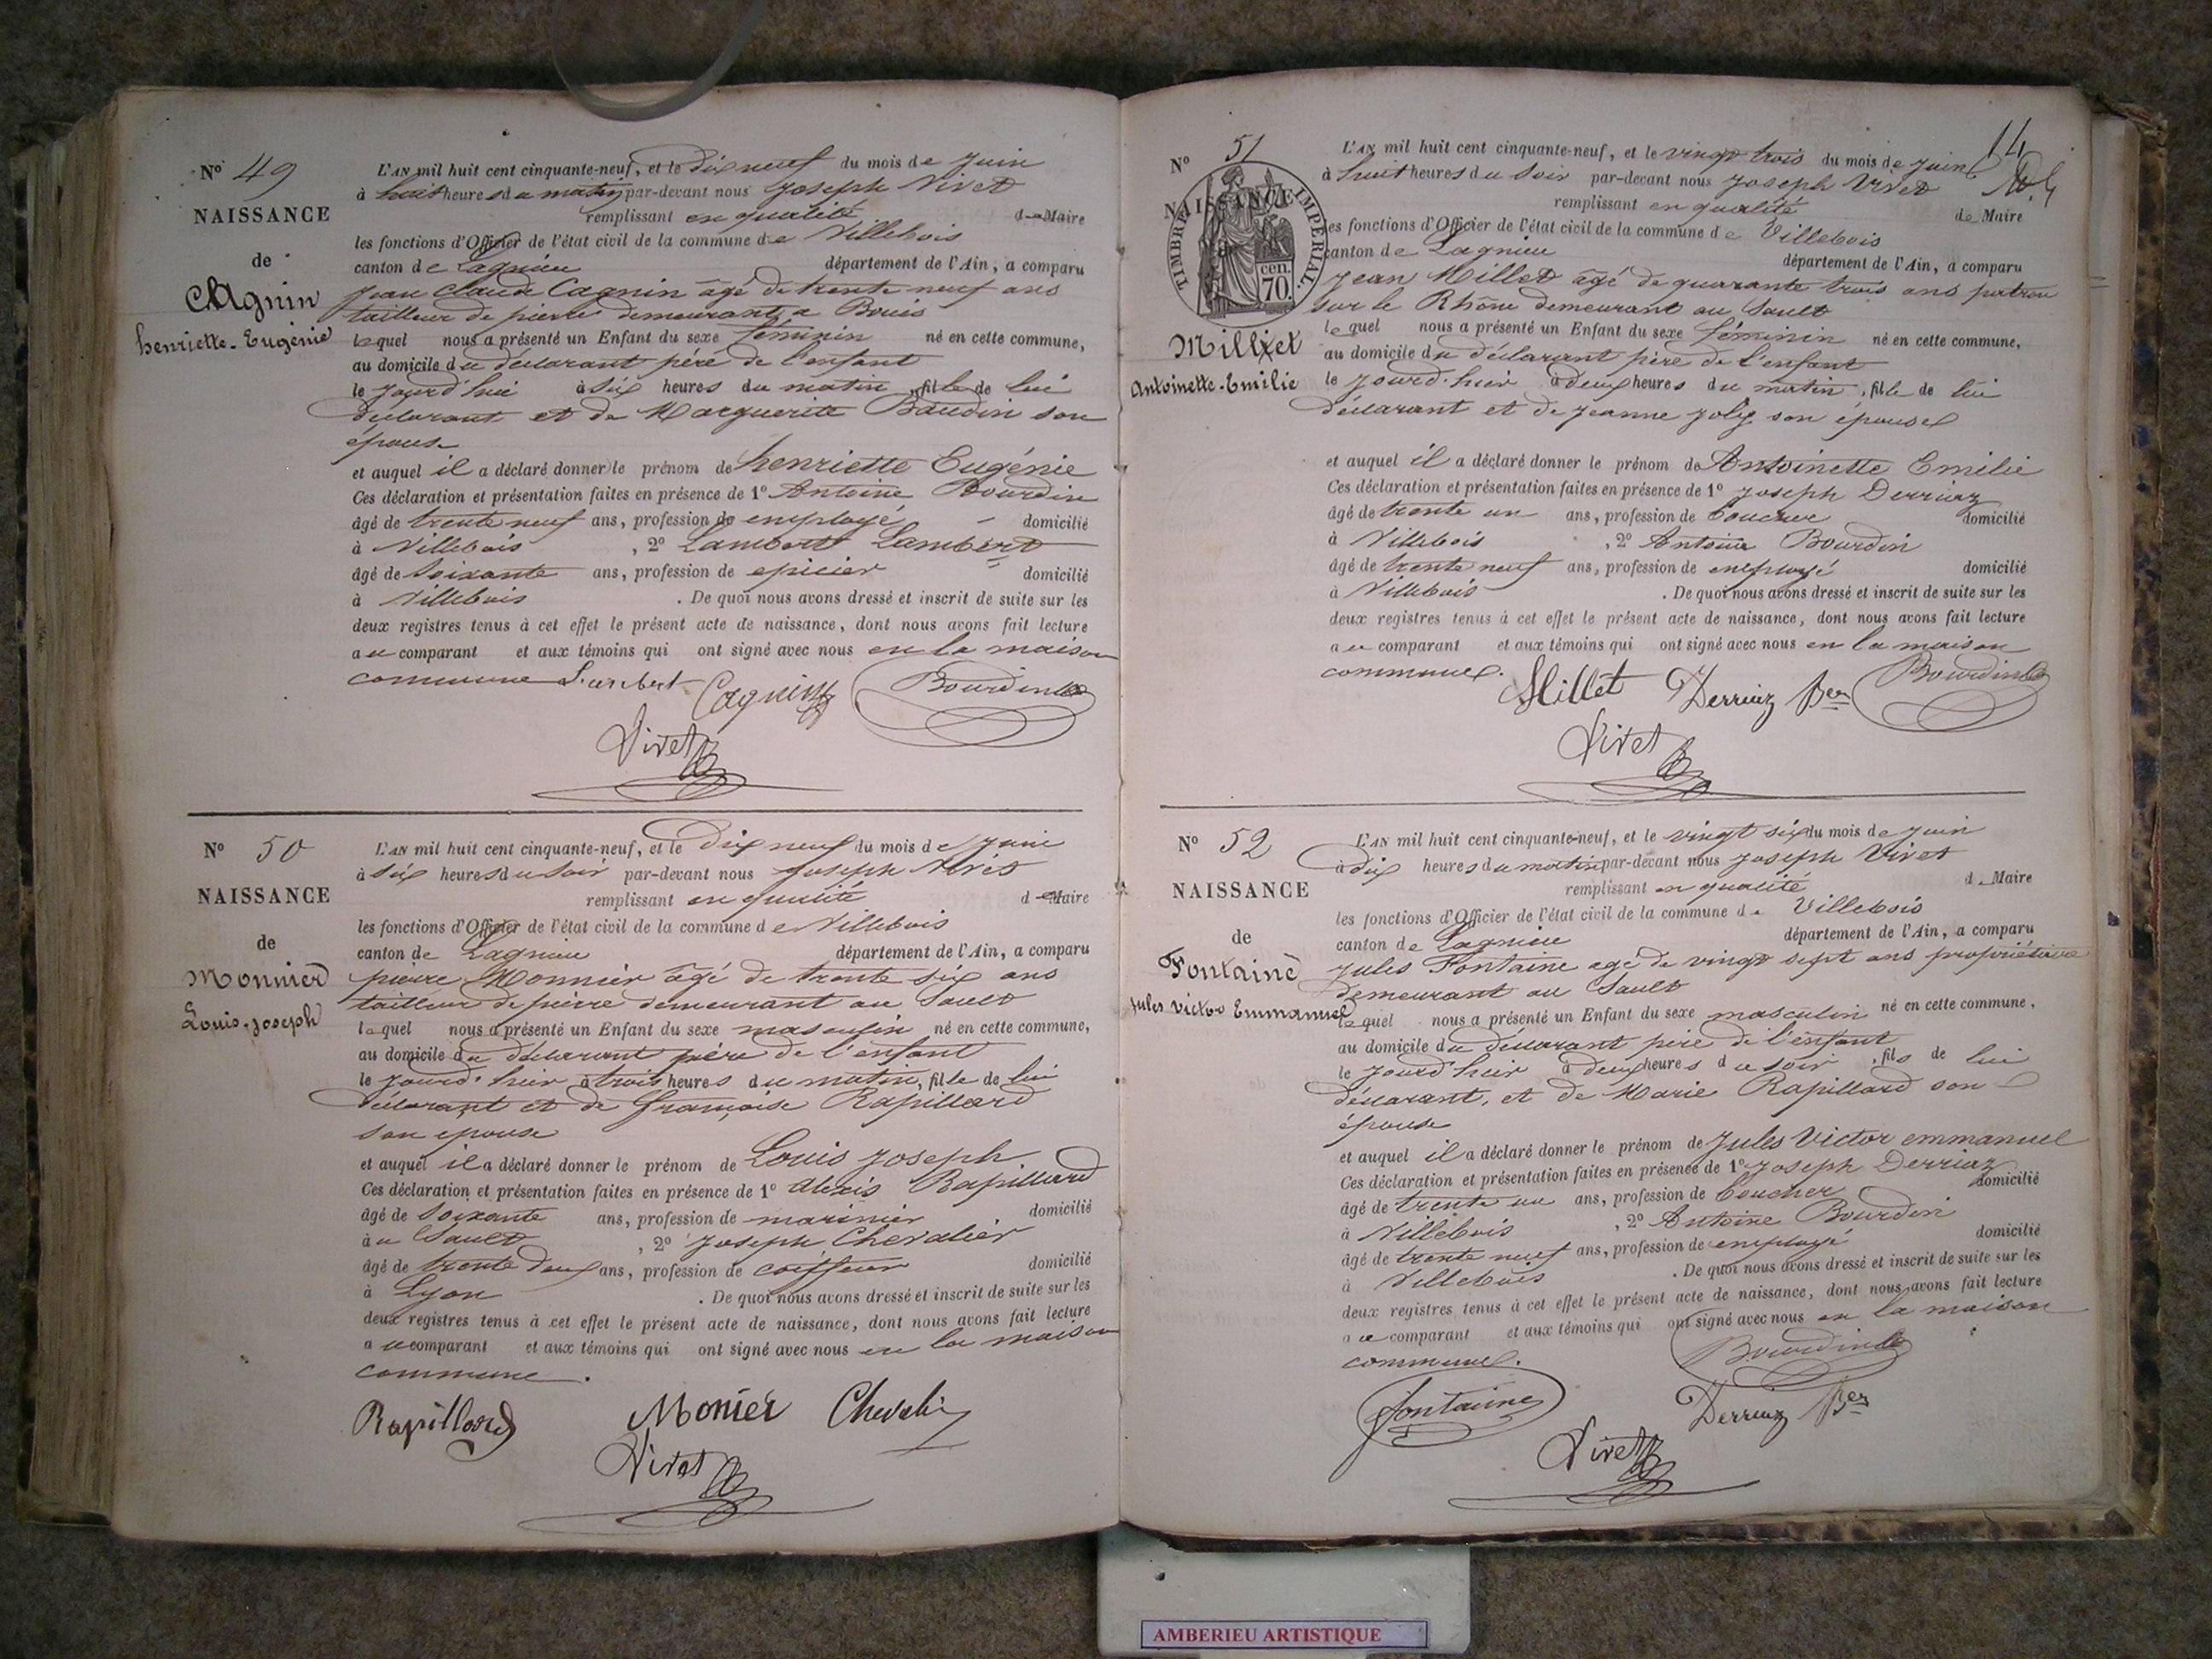 N° 49
NAISSANCE
de
CAgnin
henriette-Eugénie
L'AN mil huit cent cinquante-neuf, et le Dix neuf du mois de juin
à huit heures du matin par-devant nous Joseph Vivet
remplissant en qualité de Maire
les fonctions d'Officier de l'état civil de la commune de Villebois
canton de Lagnieu département de l'Ain, a comparu
Jean Claude Cagnin âgé de trente neuf ans
tailleur de pierre demeurant a Bouis
lequel nous a présenté un Enfant du sexe féminin né en cette commune,
au domicile du déclarant père de l'enfant
le jourd'hui à six heures du matin, fille de lui
déclarant et de Marguerite Baudin son
épouse
et auquel il a déclaré donner le prénom de henriette Eugénie
Ces déclaration et présentation faites en présence de 1° Antoine Bourdin
âgé de trente neuf ans, profession de employé domicilié
à Villebois, 2° Lambert Lambert
âgé de soixante ans, profession de epicier domicilié
à Villebois. De quoi nous avons dressé et inscrit de suite sur les
deux registres tenus à cet effet le présent acte de naissance, dont nous avons fait lecture
au comparant et aux témoins qui ont signé avec nous en la maison
commune Lambert Cagnin Bourdin
Vivet
N° 50
NAISSANCE
de
Monnier
Louis-joseph
L'AN mil huit cent cinquante-neuf, et le Dix neuf du mois de juin
à six heures du soir par-devant nous Joseph Vivet
remplissant en qualité de Maire
les fonctions d'Officier de l'état civil de la commune de Villebois
canton de Lagnieu département de l'Ain, a comparu
pierre Monnier âgé de trente six ans
tailleur de pierre demeurant au Sault
lequel nous a présenté un Enfant du sexe masculin né en cette commune,
au domicile du déclarant père de l'enfant
le jourd'huir à trois heures du matin, fille de lui
déclarant et de françoise Rapillard
son epouse
et auquel il a déclaré donner le prénom de Louis joseph
Ces déclaration et présentation faites en présence de 1° Alexis Rapillard
âgé de soixante ans, profession de marinier domicilié
au Sault, 2° Joseph Chevalier
âgé de trente deux ans, profession de coiffeur domicilié
à Lyon. De quoi nous avons dressé et inscrit de suite sur les
deux registres tenus à cet effet le présent acte de naissance, dont nous avons fait lecture
au comparant et aux témoins qui ont signé avec nous en la maison
commune.
Rapillard Monier Chevalier
Vivet
14
N° 51
NAISSANCE
TIMBRE IMPÉRIAL
70 cen.
Millet
Antoinette-Emilie
L'AN mil huit cent cinquante-neuf, et le vingt trois du mois de juin
à huit heures du soir par-devant nous Joseph Vivet
remplissant en qualité de Maire
les fonctions d'Officier de l'état civil de la commune de Villebois
canton de Lagnieu département de l'Ain, a comparu
Jean Millet âgé de quarante trois ans patron
sur le Rhône demeurant au Sault
lequel nous a présenté un Enfant du sexe féminin né en cette commune,
au domicile du déclarant père de l'enfant
le jourd'huir à deux heures du matin, fille de lui
déclarant et de jeanne joly son épouse
et auquel il a déclaré donner le prénom de Antoinette Emilie
Ces déclaration et présentation faites en présence de 1° Joseph Derriaz
âgé de trente un ans, profession de boucher domicilié
à Villebois, 2° Antoine Bourdin
âgé de trente neuf ans, profession de employé domicilié
à Villebois. De quoi nous avons dressé et inscrit de suite sur les
deux registres tenus à cet effet le présent acte de naissance, dont nous avons fait lecture
au comparant et aux témoins qui ont signé avec nous en la maison
commune. Millet Derriaz Ber Bourdin
Vivet
N° 52
NAISSANCE
de
Fontaine
Jules Victor Emmanuel
L'AN mil huit cent cinquante-neuf, et le vingt six du mois de juin
à dix heures du matin par-devant nous Joseph Vivet
remplissant en qualité de Maire
les fonctions d'Officier de l'état civil de la commune de Villebois
canton de Lagnieu département de l'Ain, a comparu
Jules Fontaine agé de vingt sept ans propriétaire
demeurant au Sault
lequel nous a présenté un Enfant du sexe masculin né en cette commune,
au domicile du déclarant père de l'enfant
le jourd'huir à deux heures du soir, fils de lui
déclarant, et de Marie Rapillard son
épouse
et auquel il a déclaré donner le prénom de Jules Victor emmanuel
Ces déclaration et présentation faites en présence de 1° Joseph Derriaz
âgé de trente un ans, profession de boucher domicilié
à Villebois, 2° Antoine Bourdin
âgé de trente neuf ans, profession de employé domicilié
à Villebois. De quoi nous avons dressé et inscrit de suite sur les
deux registres tenus à cet effet le présent acte de naissance, dont nous avons fait lecture
au comparant et aux témoins qui ont signé avec nous en la maison
commune. Bourdin
fontaine Derriaz Ber
Vivet
AMBERIEU ARTISTIQUE